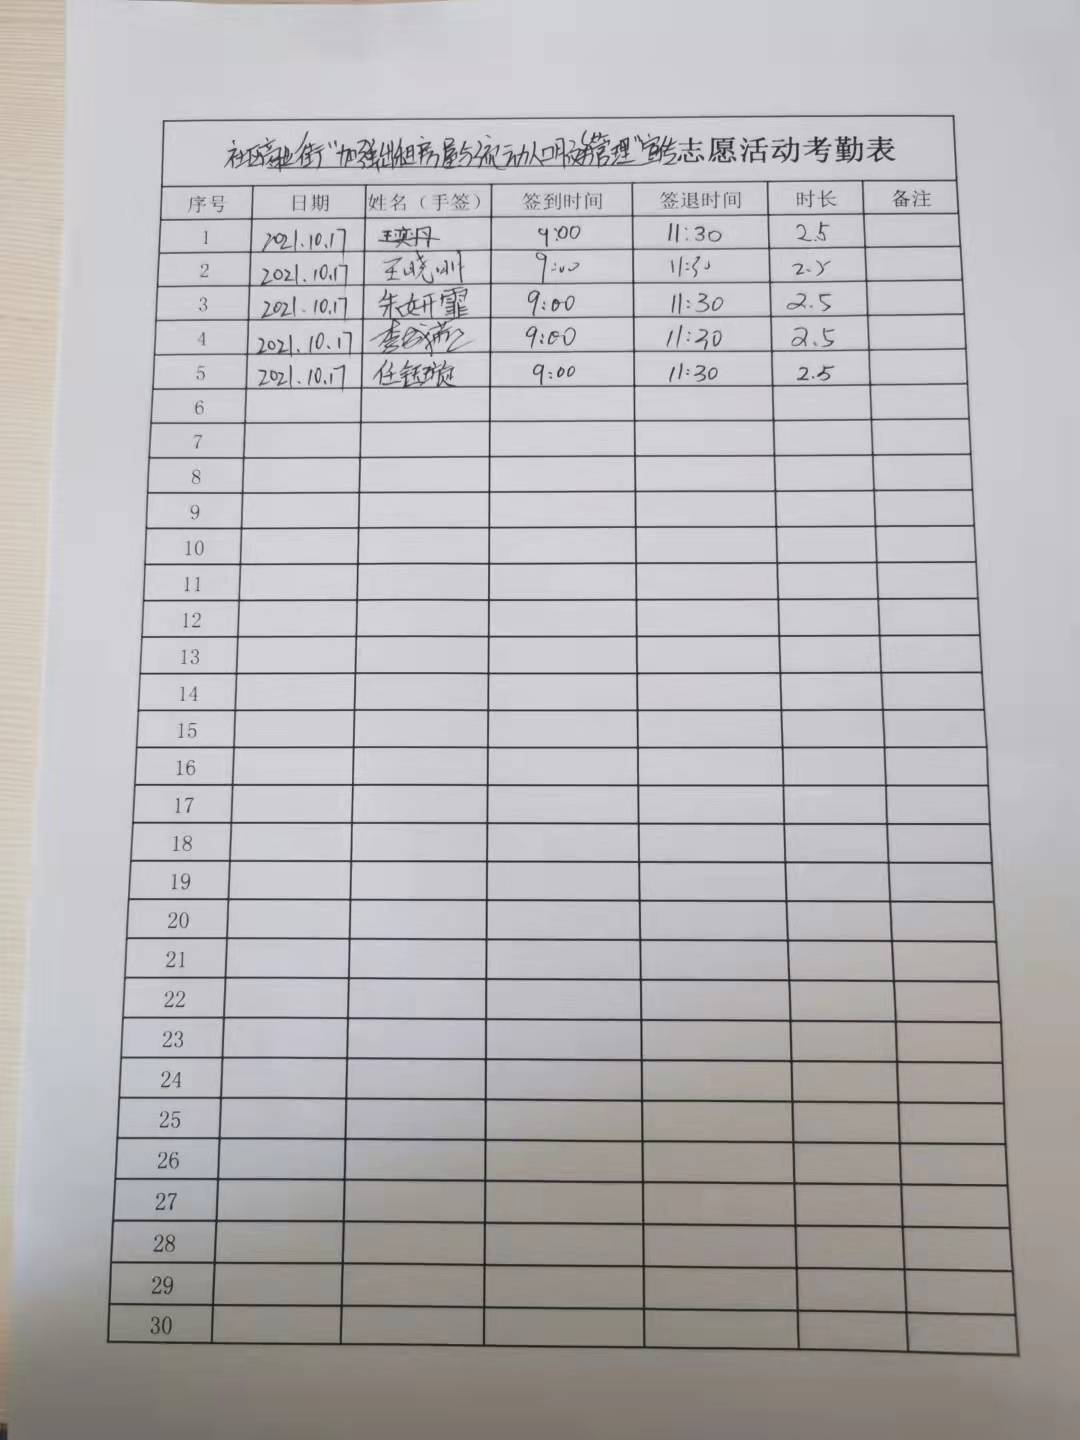 社区商业街"加强出租房屋与流动人口服务管理"宣传志愿活动考勤表
序号 日期 姓名（手签） 签到时间 签退时间 时长 备注
1 2021.10.17 王奕丹 9:00 11:30 2.5
2 2021.10.17 王晓明 9:00 11:30 2.5
3 2021.10.17 朱妍霏 9:00 11:30 2.5
4 2021.10.17 李 9:00 11:30 2.5
5 2021.10.17 任钰璇 9:00 11:30 2.5
6
7
8
9
10
11
12
13
14
15
16
17
18
19
20
21
22
23
24
25
26
27
28
29
30